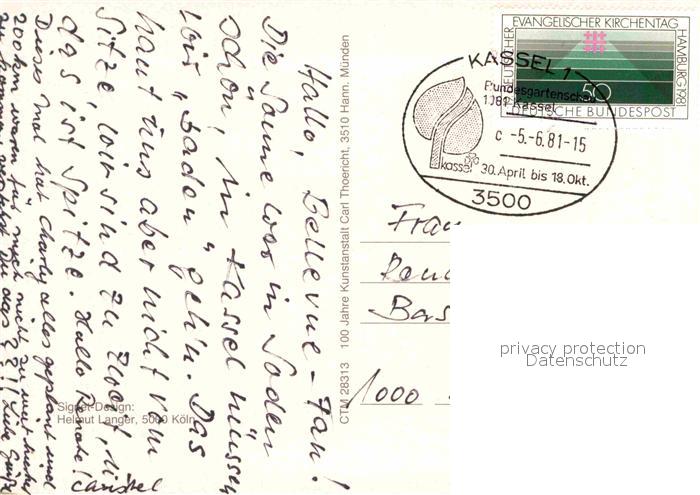 Hallo, Bellevue-Fan!
Die Sonne war in Soden
schön, in Kassel müssen
wir „Baden" geh'n. Das
haut uns aber nicht vom
Sitze wir sind zu zweit,
das ist Spitze. Hallo Renate!
Christel
Dieses Mal hat Charly alles geplant und
200 km waren für mich nicht zu weit hierher
zu kommen, verstehst Du das??! Liebe Grüße
Signet-Design:
Helmut Langer, 5000 Köln
CTM 28313 100 Jahre Kunstanstalt Carl Thoericht, 3510 Hann. Münden
DEUTSCHER EVANGELISCHER KIRCHENTAG HAMBURG 1981
50
DEUTSCHE BUNDESPOST
KASSEL 1
Bundesgartenschau
1981 Kassel
c -5.-6.81-15
kassel 30. April bis 18. Okt.
3500
Frau
Bas
1000
privacy protection
Datenschutz